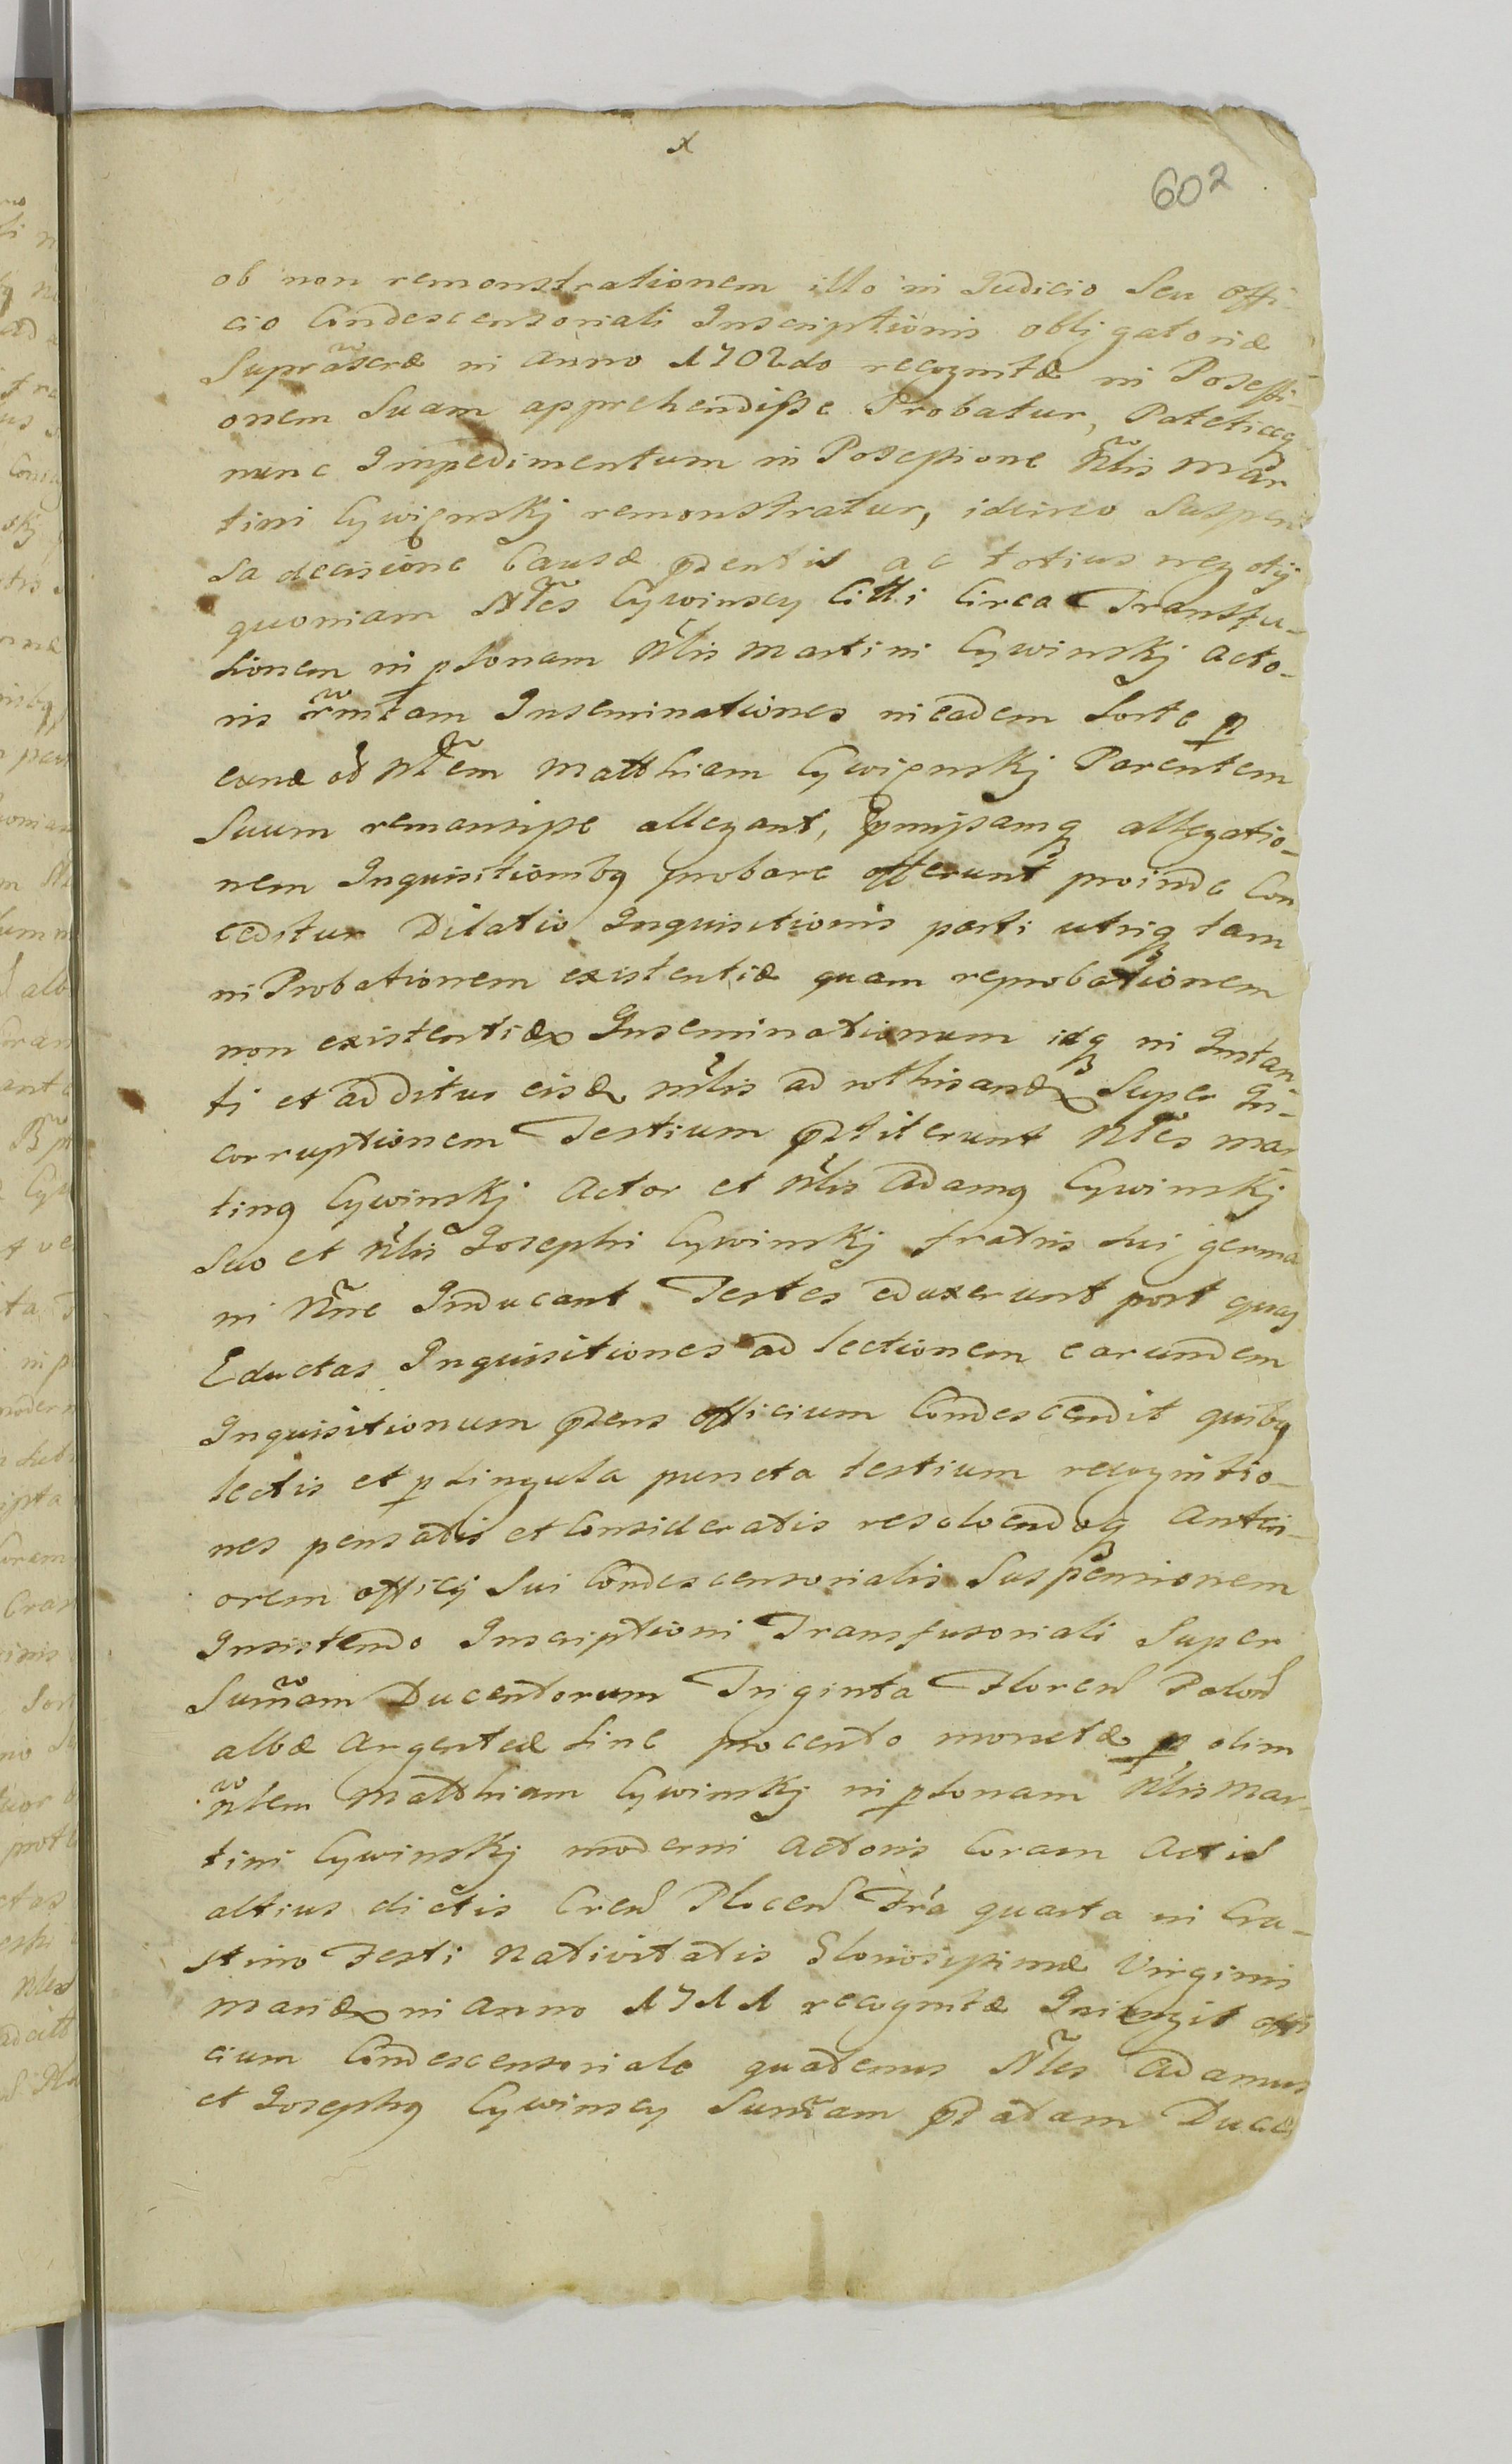 x
602
ob non remonstrationem illo in Judicio Seu offi-
cio Condescensoriali Inscriptionis obligatoriæ
Suprascræ in anno 1702do recognitæ in Possessi-
onem Suam apprehendisse Probatur, Pateticaq
nunc Impedimentum in Possessione Nlis Mar
tini Cywięnskj remonstratur, idcirco Suspen
sa decisione Causæ pntis ac totius negotij
quoniam Nles Cywinscy Citti Circa Transfu-
sionem in psonam Nlis Martini Cywinskj Acto-
ris Inseminationes in eadem Sorte p
ad Nlem Matthiam Cywięnskj Parentem
Suum remansisse allegant, pmissamq allegatio-
nem Inquisitionibq probare offerunt proinde Con
ceditur Dilatio Inquisitionis parti utriq tam
in Probationem existentiæ quam reprobationem
non existentiæ Inseminationum idq in Instan-
ti et additus eisd ad rothisand Super In-
corruptionem Testium pstiterunt Nles Mar
tinq Cywinskj Actor et Nlis Adamq Cywinskj
Suo et Nlis Josephi Cywinskj fratris Sui germa
ni Nne Inducant Testes eduxerunt post quas
Eductas Inquisitiones ad lectionem earundem
Inquisitionum pns officium Condescendit quibq
lectis et p singula puncta testium recognitio-
nes pensatis et Consideratis resolvendoq Anteri-
orem officij Sui Condescensorialis Suspensionem
Insistendo Inscriptioni Transfusoriali Super
Sumam Ducentorum Triginta Floren Polon
albæ Argenteæ Sine procento monetæ p olim
Nlem Matthiam Cywinskj in psonam Nlis Mar-
tini Cywinskj moderni Actoris Coram Actis
altius dictis Cren Plocen Fra quarta in Cra-
stino Festi Nativitatis Gloriosissimæ Virginis
Mariæ in Anno 1711 recognitæ Iniungit offi
cium Condescensoriale quatenus Nles Adamus
et Josephq Cywinscy Sumam pdatam Duce